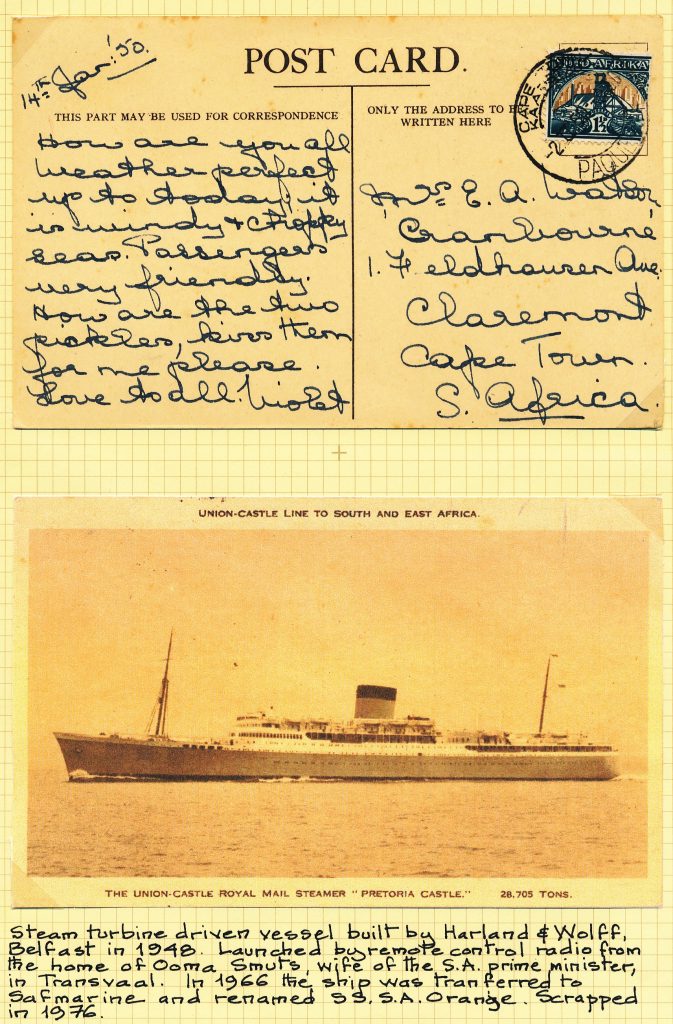 14TH Jan: '50.
POST CARD.
THIS PART MAY BE USED FOR CORRESPONDENCE
ONLY THE ADDRESS TO BE
WRITTEN HERE
How are you all
weather perfect
up to today, it
is windy & choppy
seas. Passengers
very friendly.
How are the two
pickles, kiss them
for me please.
Love to all. Violet
CAPE
KAAPS
PAQUE
1½
Mrs E. A. Watson
Cranbourne
1. Feldhausen Ave.
Claremont
Cape Town.
S. Africa.
UNION-CASTLE LINE TO SOUTH AND EAST AFRICA.
THE UNION-CASTLE ROYAL MAIL STEAMER "PRETORIA CASTLE." 28,705 TONS.
Steam turbine driven vessel built by Harland & Wolff,
Belfast in 1948. Launched by remote control radio from
the home of Ooma Smuts, wife of the S.A. prime minister,
in Transvaal. In 1966 the ship was tranferred to
Safmarine and renamed SS. S.A. Orange. Scrapped
in 1976.